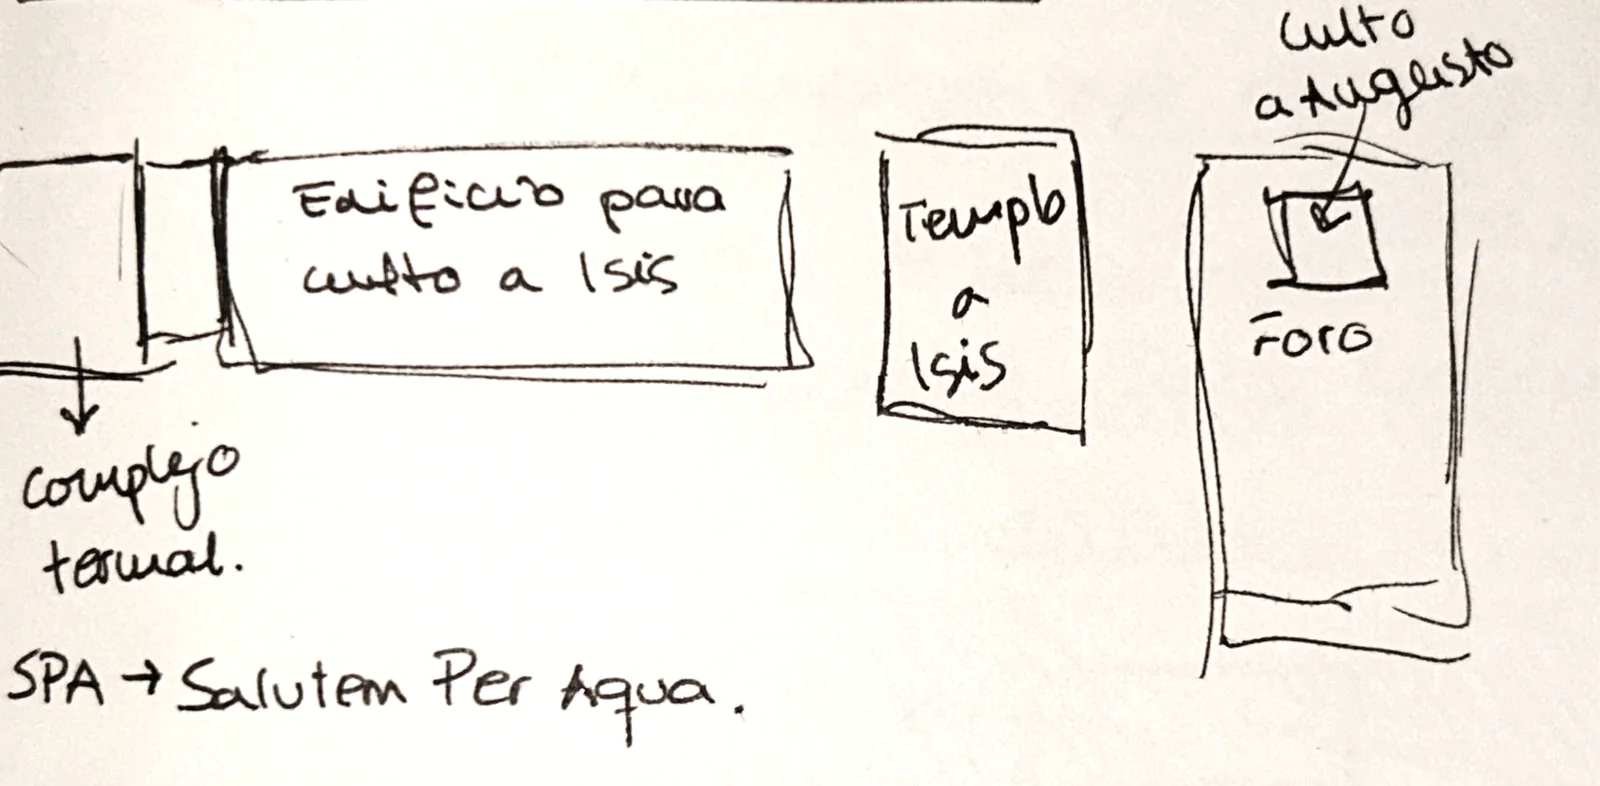 Culto
a Augusto
Edificio para
culto a Isis
Templo
a
Isis
Foro
Complejo
termal.
SPA → Salutem Per Aqua.